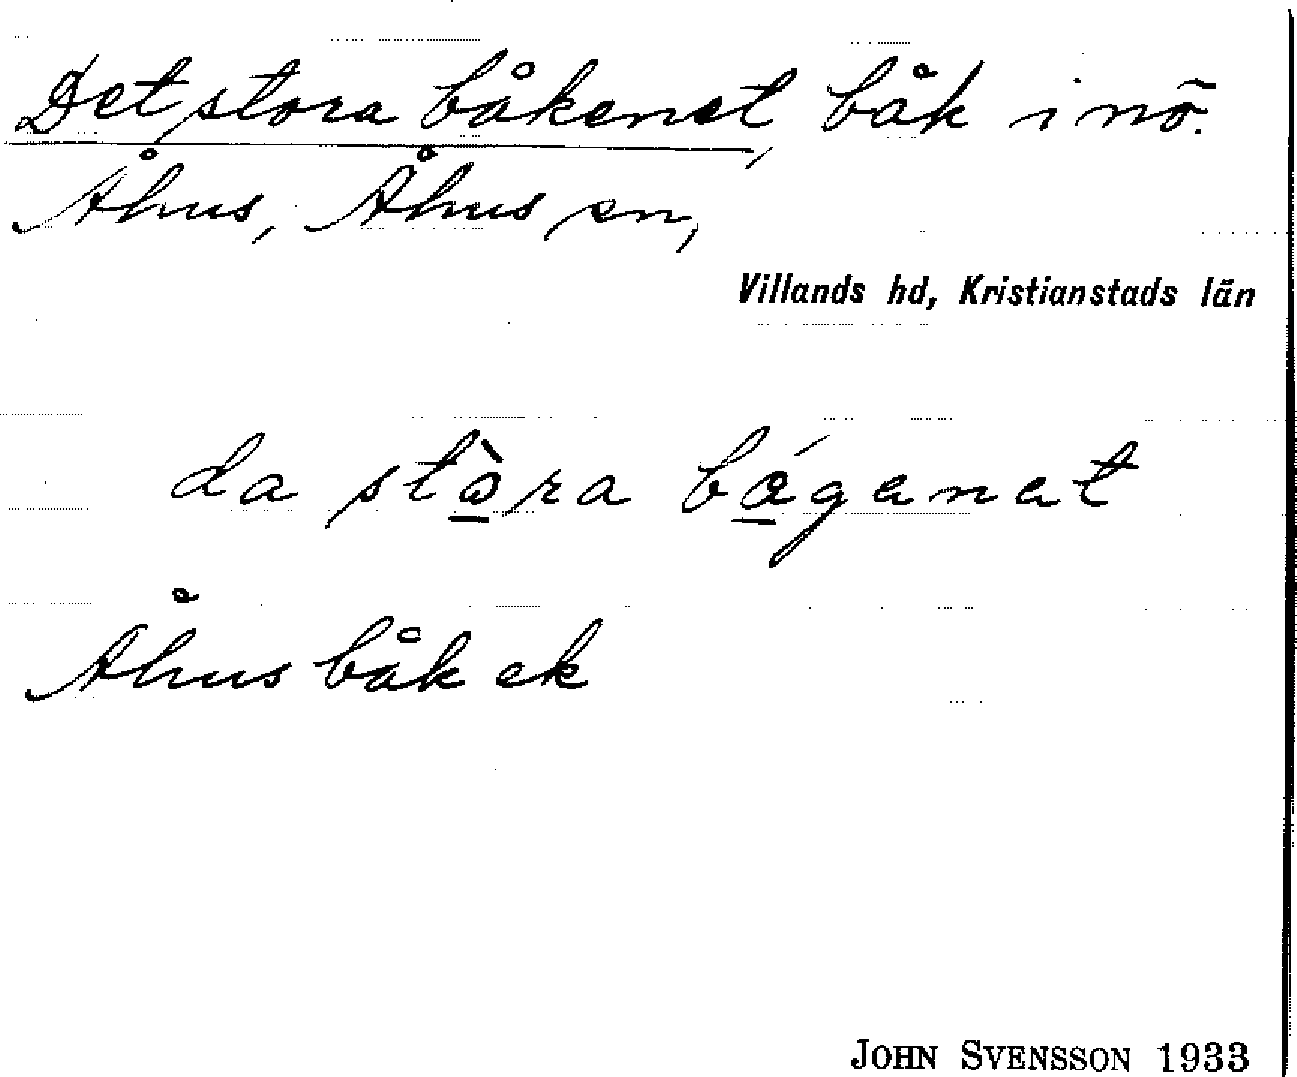 Det stora båkenet, båk i nö.
Åhus, Åhus sn,
Villands hd, Kristianstads län
da stòra bágenet
Åhus båk ek
JOHN SVENSSON 1933